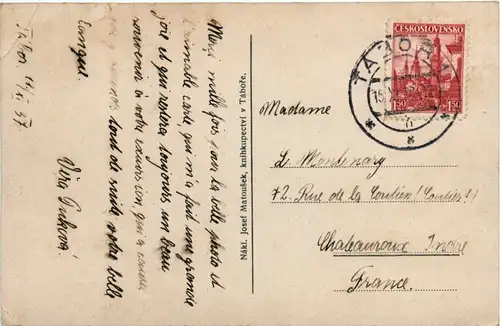 Merci mille fois pour la belle photo et
l'aimable carte, qui m'a fait une grande
joie et qui restera toujours un beau
souvenir à votre excursion, qui a causé
tout de suite, votre belle
langue.
Tábor
37
Věra
Nákl. Josef Matoušek, knihkupectví v Táboře.
ČESKOSLOVENSKO
1·50 1·50
TÁBOR
Madame
42. Rue de la
Chateauroux Indre
France.